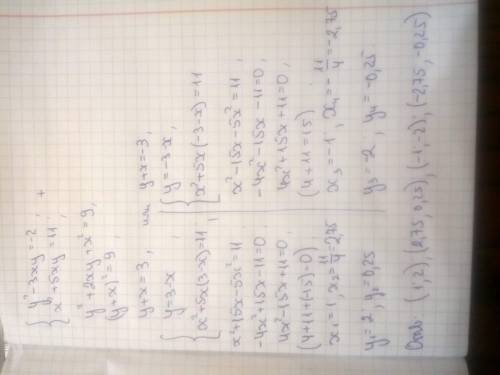 { y² - 3xy = -2,
x² + 5xy = 11, +
y² + 2xy + x² = 9,
(y+x)² = 9,
y+x = 3, или y+x = -3,
y = 3-x y = -3-x,
{ x² + 5x(3-x) = 11, { x² + 5x(-3-x) = 11
x² + 15x - 5x² = 11 x² - 15x - 5x² = 11,
-4x² + 15x - 11 = 0 -4x² - 15x - 11 = 0,
4x² - 15x + 11 = 0 4x² + 15x + 11 = 0,
(4+11+(-15) = 0) (4+11=15)
x₁ = 1, x₂ = 11/4 = 2,75 x₃ = -1, x₄ = -11/4 = -2,75
y₁ = 2, y₂ = 0,25 y₃ = -2 y₄ = -0,25
Отв: (1; 2), (2,75; 0,25), (-1; -2); (-2,75; -0,25)